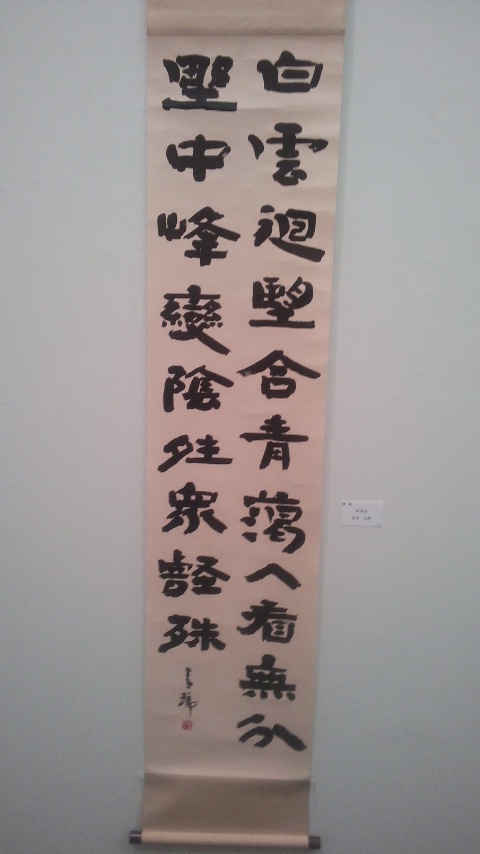 白雲迴朢合青藹入看無分
野中峰變陰夝衆壑殊